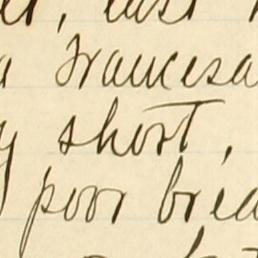 , east
Francesa
short,
poor brea